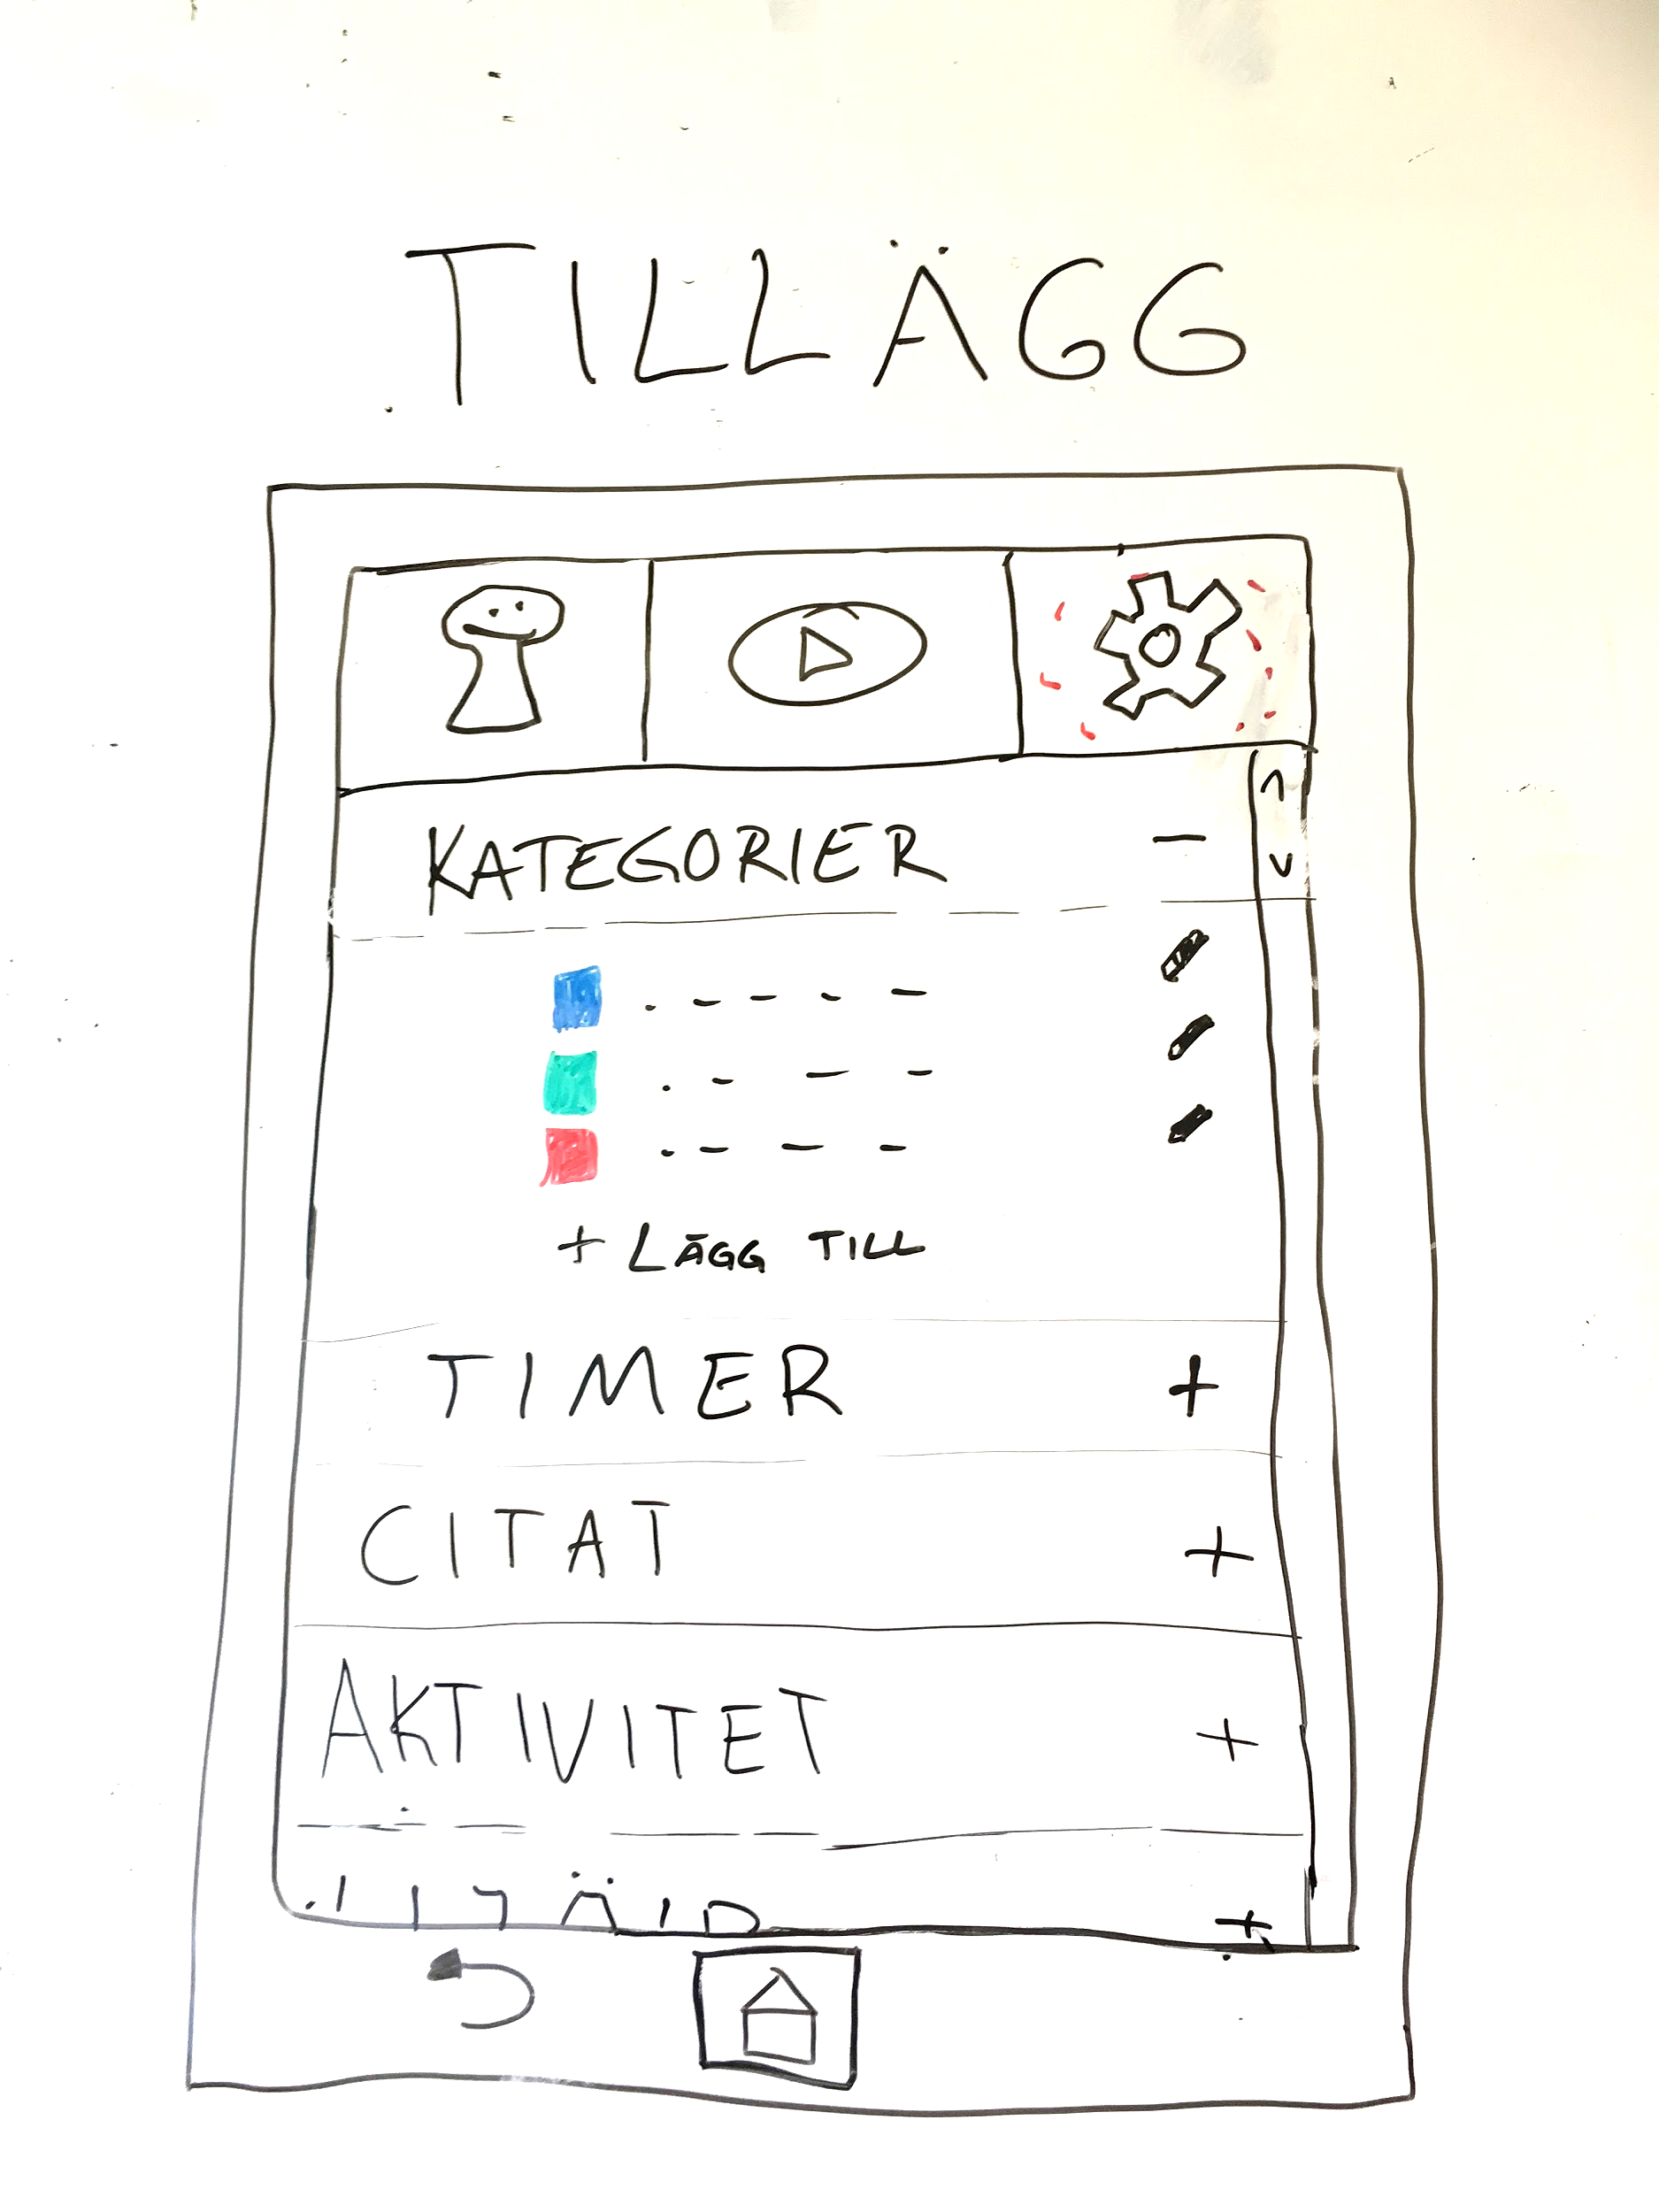 TILLÄGG
KATEGORIER −
+ LÄGG TILL
TIMER +
CITAT +
AKTIVITET +
+